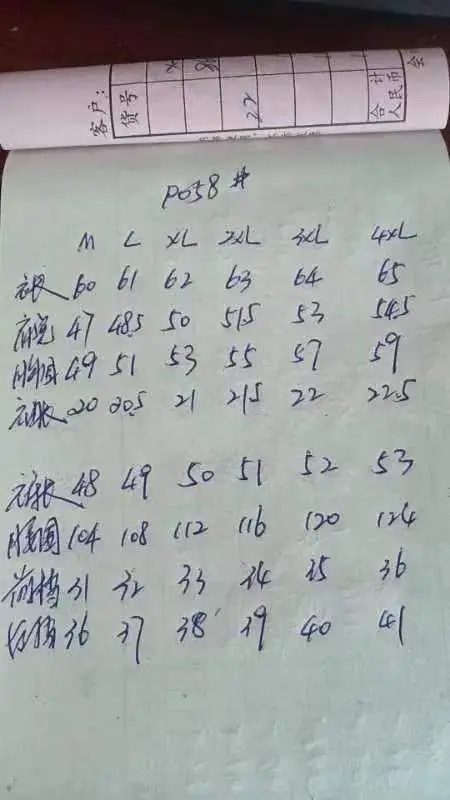 客户:
货号
22
合计
人民币
P058#
M L XL 2XL 3XL 4XL
衣长 60 61 62 63 64 65
肩宽 47 48.5 50 51.5 53 54.5
胸围 49 51 53 55 57 59
衣长 20 20.5 21 21.5 22 22.5
衣长 48 49 50 51 52 53
腰围 104 108 112 116 120 124
前档 31 32 33 34 35 36
后档 36 37 38 39 40 41